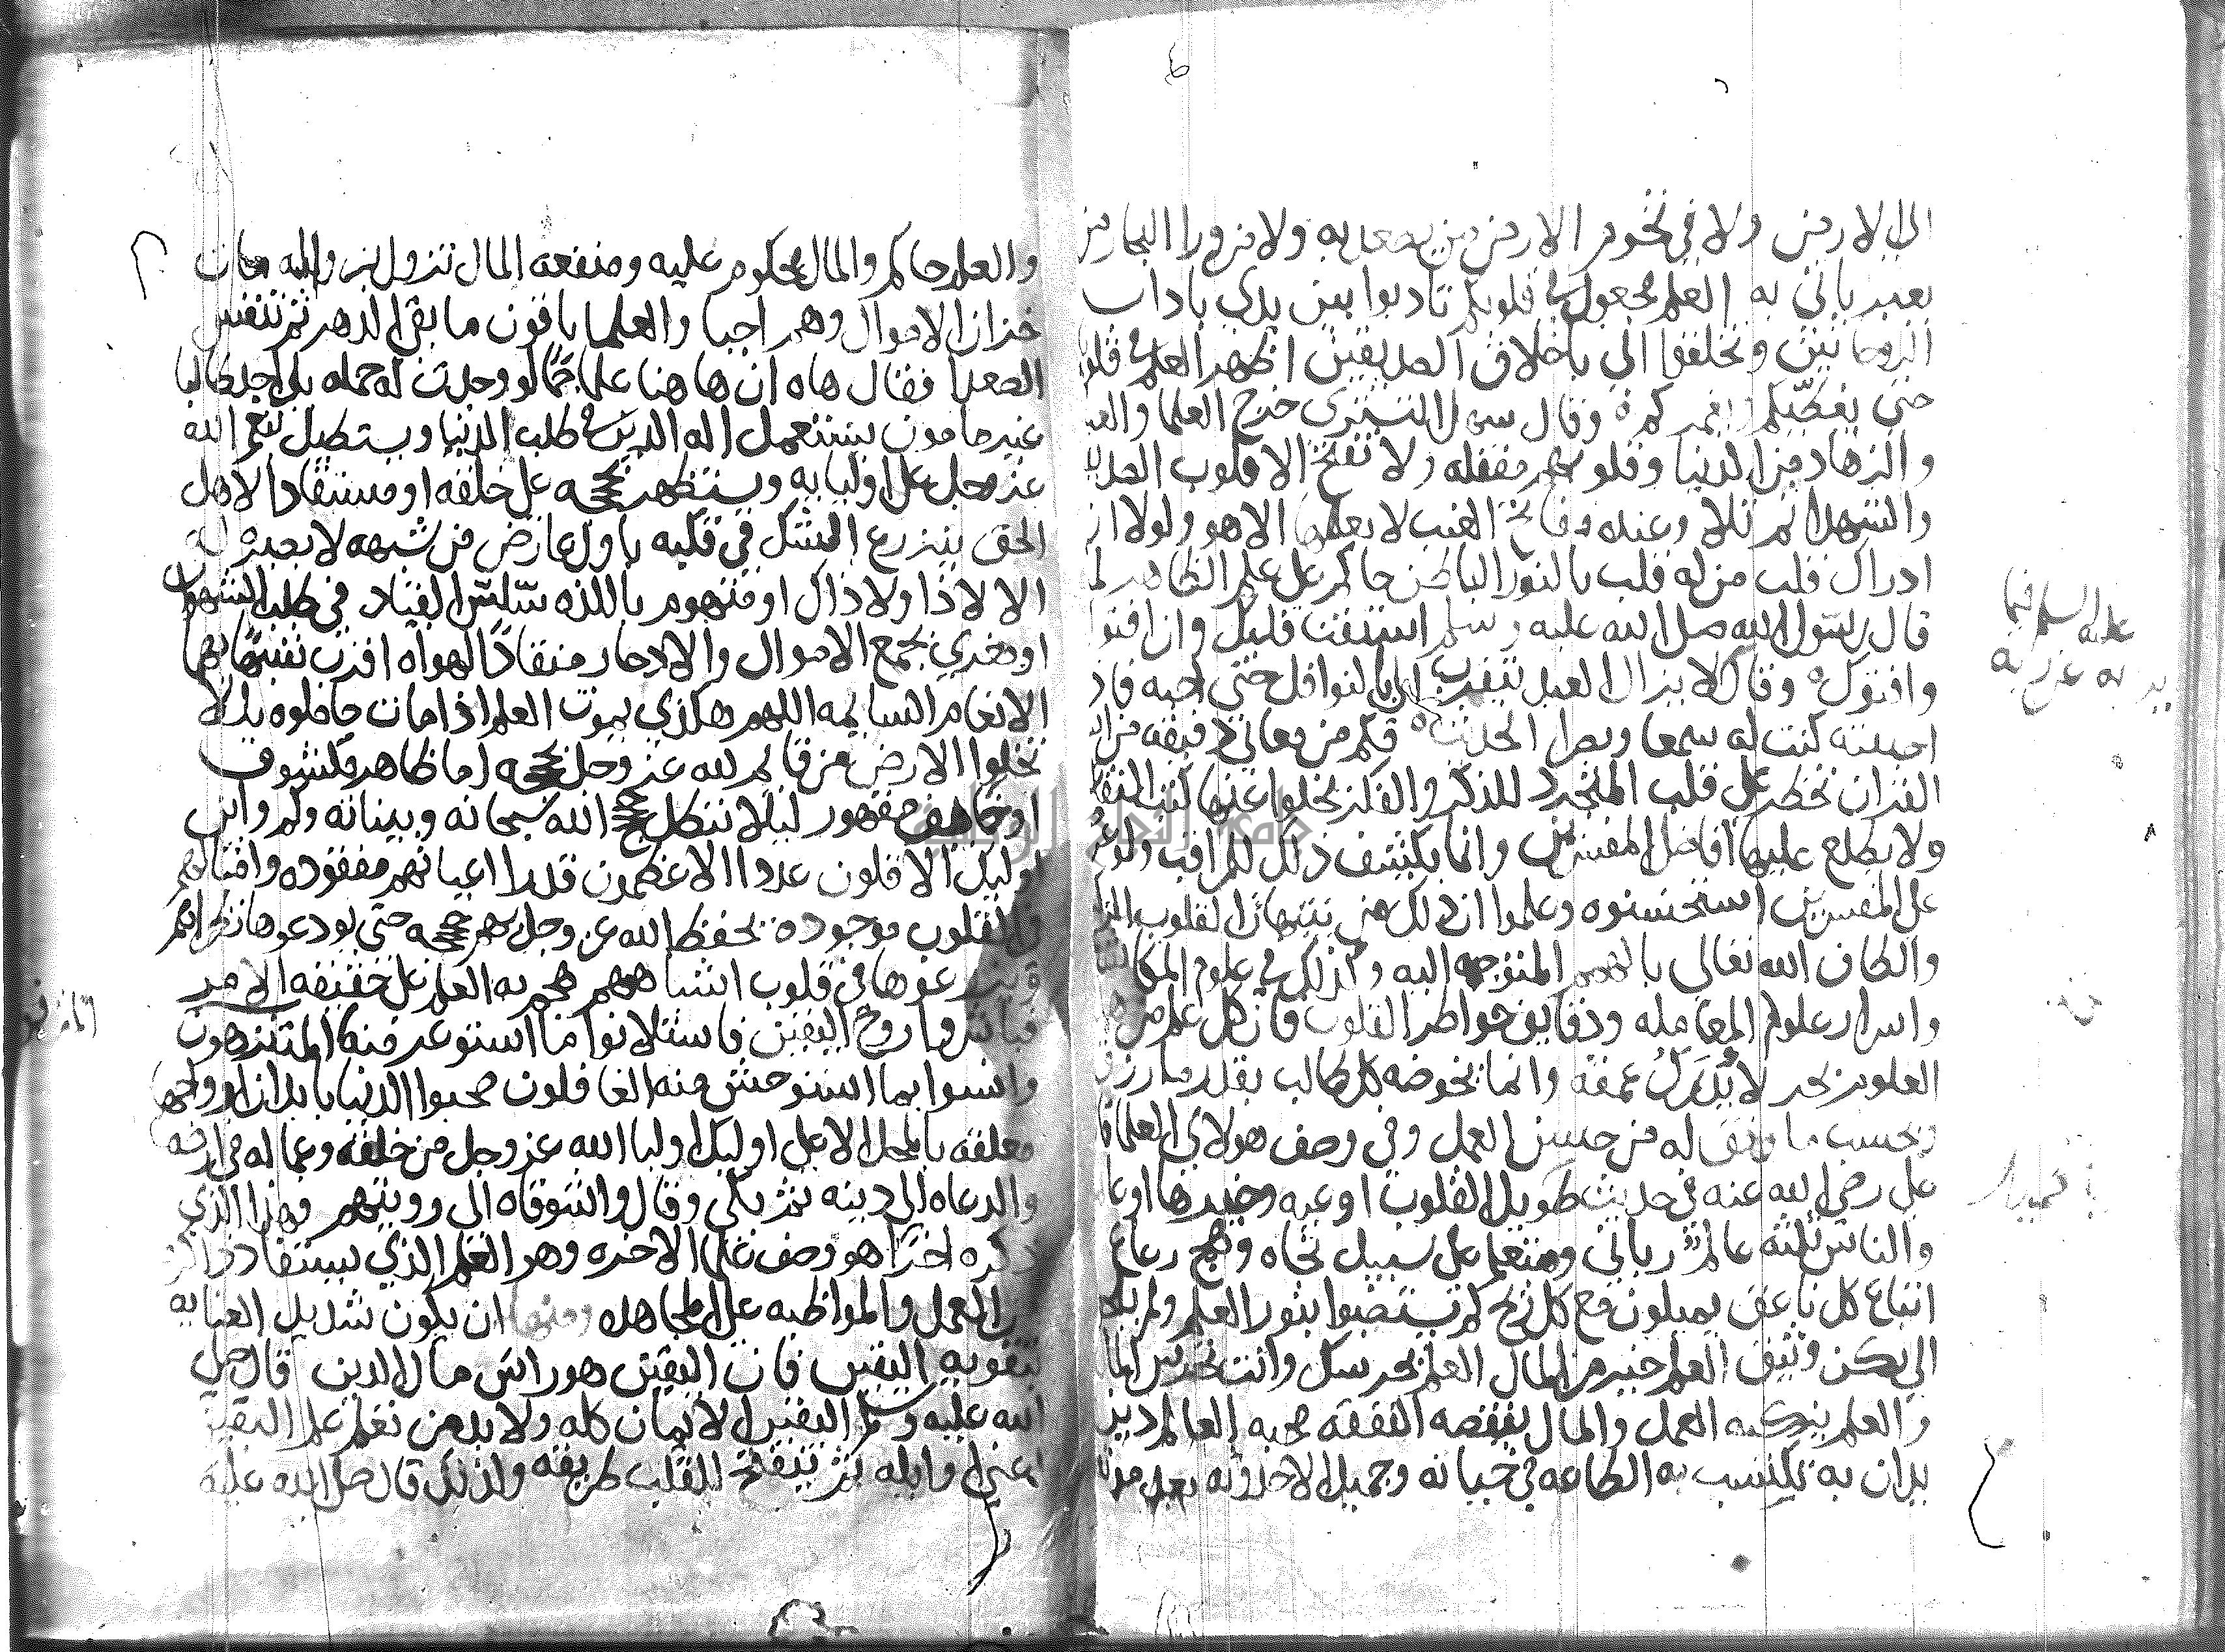 الى الارض ولا في تخوم الارض من يصعد به ولا من ورا البحار من
يعبر ياتي به العلم مجعول في قلوبكم تادبوا بين يدي باداب
الروحانيين وتخلقوا الي باخلاق الصديقين اظهر العلم في قلوبكم
حتى يغطيكم ويغمركم وقال سهل التستري خرج العلما والعباد
والزهاد من الدنيا وقلوبهم مقفله ولا تفتح الا قلوب الصديقين
والشهدا ثم تلا وعنده مفاتح الغيب لا يعلمها الا هو ولولا ان
ادراك قلب من له قلب بالنور الباطن حاكم على علم الظاهر لما
قال رسول الله صلى الله عليه وسلم استفت قلبك وان افتوك
وافتوك وقال لا يزال العبد يتقرب الي بالنوافل حتى احبه فاذا
احببته كنت له سمعا وبصرا الحديث فكم من معاني دقيقه من اسرار
القران تخطر على قلب المتجرد للذكر والفكر تخلوا عنها كتب التفاسير
ولا يطلع عليها افاضل المفسرين وانما ينكشف ذلك للمراقب ولو عرض
على المفسرين استحسنوه وعلموا ان ذلك من تنبيهات القلوب الزكيه
والطاف الله تعالى بالهمم المتوجهه اليه وكذلك في علوم المكاشفه
واسرار علوم المعامله ودقايق خواطر القلوب فان كل علم من هذه
العلوم بحر لا يدرك عمقه وانما يخوضه كل طالب بقدر ما رزق
وبحسب ما وفق له من حسن العمل وفي وصف هولاي العلما قال
علي رضي الله عنه في حديث طويل القلوب اوعيه وخيرها اوعاها
والناس ثلثه عالم رباني ومتعلم على سبيل نجاه وهمج رعاع
اتباع كل ناعق يميلون مع كل ريح لم يستضيوا بنور العلم ولم يلجوا
الى ركن وثيق العلم خير من المال العلم يحرسك وانت تحرس المال
والعلم يزكيه العمل والمال ينقصه النفقه محبه العالم دين
يدان به تكتسب به الطاعه في حياته وجميل الاحدوثه بعد موته
عليه السلم فيما
يرويه عن ربه
والعلم حاكم والمال محكوم عليه ومنفعه المال تزول بزواله مات
خزان الاموال وهم احيا والعلما باقون ما بقي الدهر ثم تنفس
الصعدا فقال هاه ان هاهنا علما جما لو وجدت له حمله بل اجد طالبا
غير مامون يستعمل اله الدين في طلب الدنيا ويستطيل بنعم الله
عز وجل على اوليايه ويستظهر بحججه على خلقه او منقادا لاهل
الحق ينزرع الشك في قلبه باول عارض من شبهه لا بصيره له
الا لا ذا ولا ذاك او منهوم باللذه سلس القياد في طلب الشهوات
او مغري بجمع الاموال والادخار منقادا لهواه اقرب شبها بهما
الانعام السايمه اللهم هكذي يموت العلم اذا مات حاملوه بل لا
تخلوا الارض من قايم لله عز وجل بحججه اما ظاهر مكشوف
او خايف مقهور ليلا تبطل حجج الله سبحانه وبيناته وكم واين
اوليك الاقلون عددا الاعظمون قدرا اعيانهم مفقوده وامثالهم
في القلوب موجوده يحفظ الله عز وجل بهم حججه حتى يودعوها نظراهم
ويزرعوها في قلوب اشباههم هجم به العلم على حقيقه الامر
فباشروا روح اليقين فاستلانوا ما استوعر منه المترفون
وانسوا بما استوحش منه الغافلون صحبوا الدنيا بابدان ارواحها
معلقه بالمحل الاعلى اوليك اوليا الله عز وجل من خلقه وعماله في ارضه
والدعاه الى دينه ثم بكى وقال واشوقاه الى رويتهم وهذا الذي
ذكره اخيرا هو وصف علما الاخره وهو العلم الذي يستفاد اكثره
من العمل والمواظبه على المجاهده ومنها ان يكون شديد العنايه
بتقويه اليقين فان اليقين هو راس مال الدين قال صلى
الله عليه وسلم اليقين الايمان كله ولا بد من تعلم علم اليقين
اعني اوايله ثم ينفتح للقلب طريقه ولذلك قال صلى الله عليه